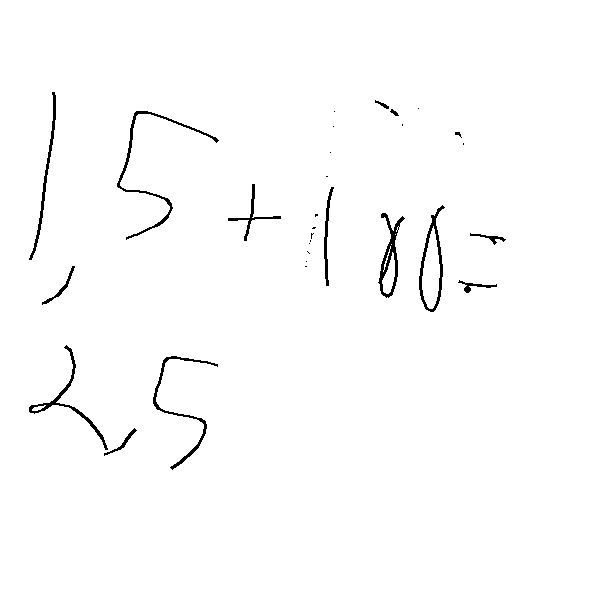 1,5+100=
2,5